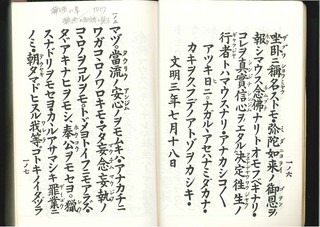 坐臥ニ稱名ストモ・弥陀如来ノ御恩ヲ
報シマウス念佛ナリトオモフヘキナリ・
コレヲ真實信心ヲエタル決定往生ノ
行者トハマウスナリ・アナカシコ〱
アツキ日ニ・ナカルヽアセハナミダカナ・
カキヲクフデノアトゾヲカシキ・
文明三年七月十八日
マヅ當流ノ安心ノヲモムキハ・アナカチニ
ワカコヽロノワロキヲモ・マタ妄念妄執ノ
コヽロノヲコルヲモ・トヾメヨトイフニモアラス・
タヾアキナヒヲモシ・奉公ヲモセヨ・獵
スナトリヲモセヨ・カヽルアサマシキ罪業ニ
ノミ・朝夕マドヒヌル我等コトキノイタツラ
一ノ七